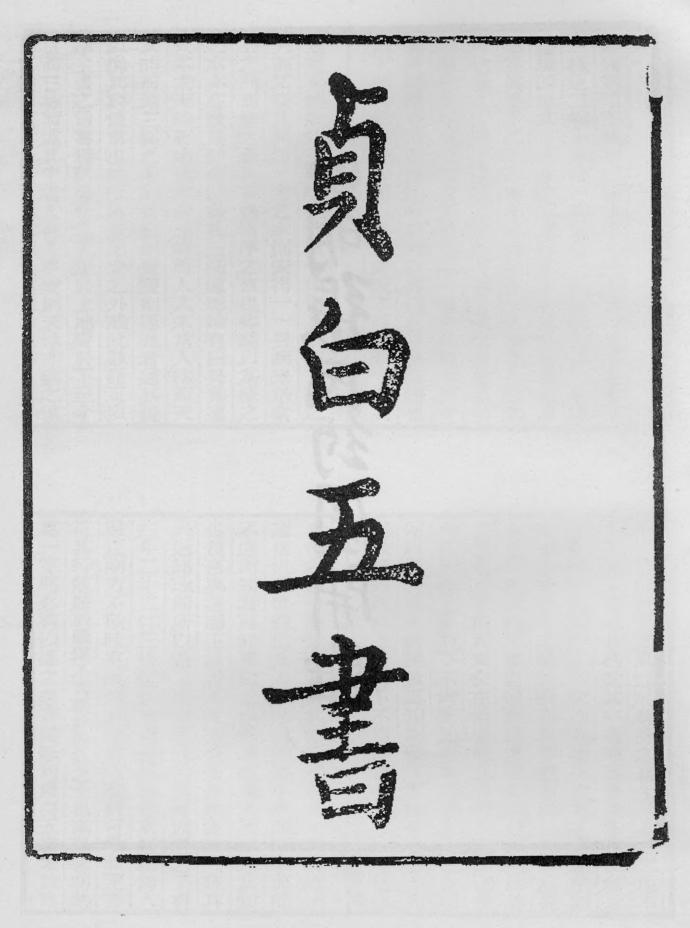 貞白五書